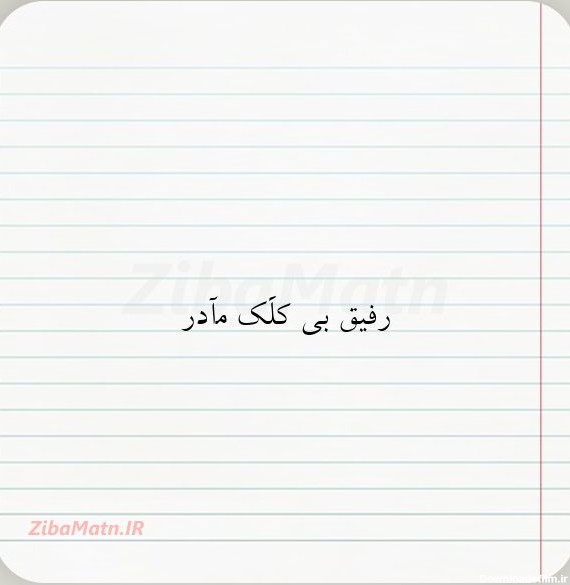 ZibaMatn
رفیق بی کلَک مآدر
ZibaMatn.IR